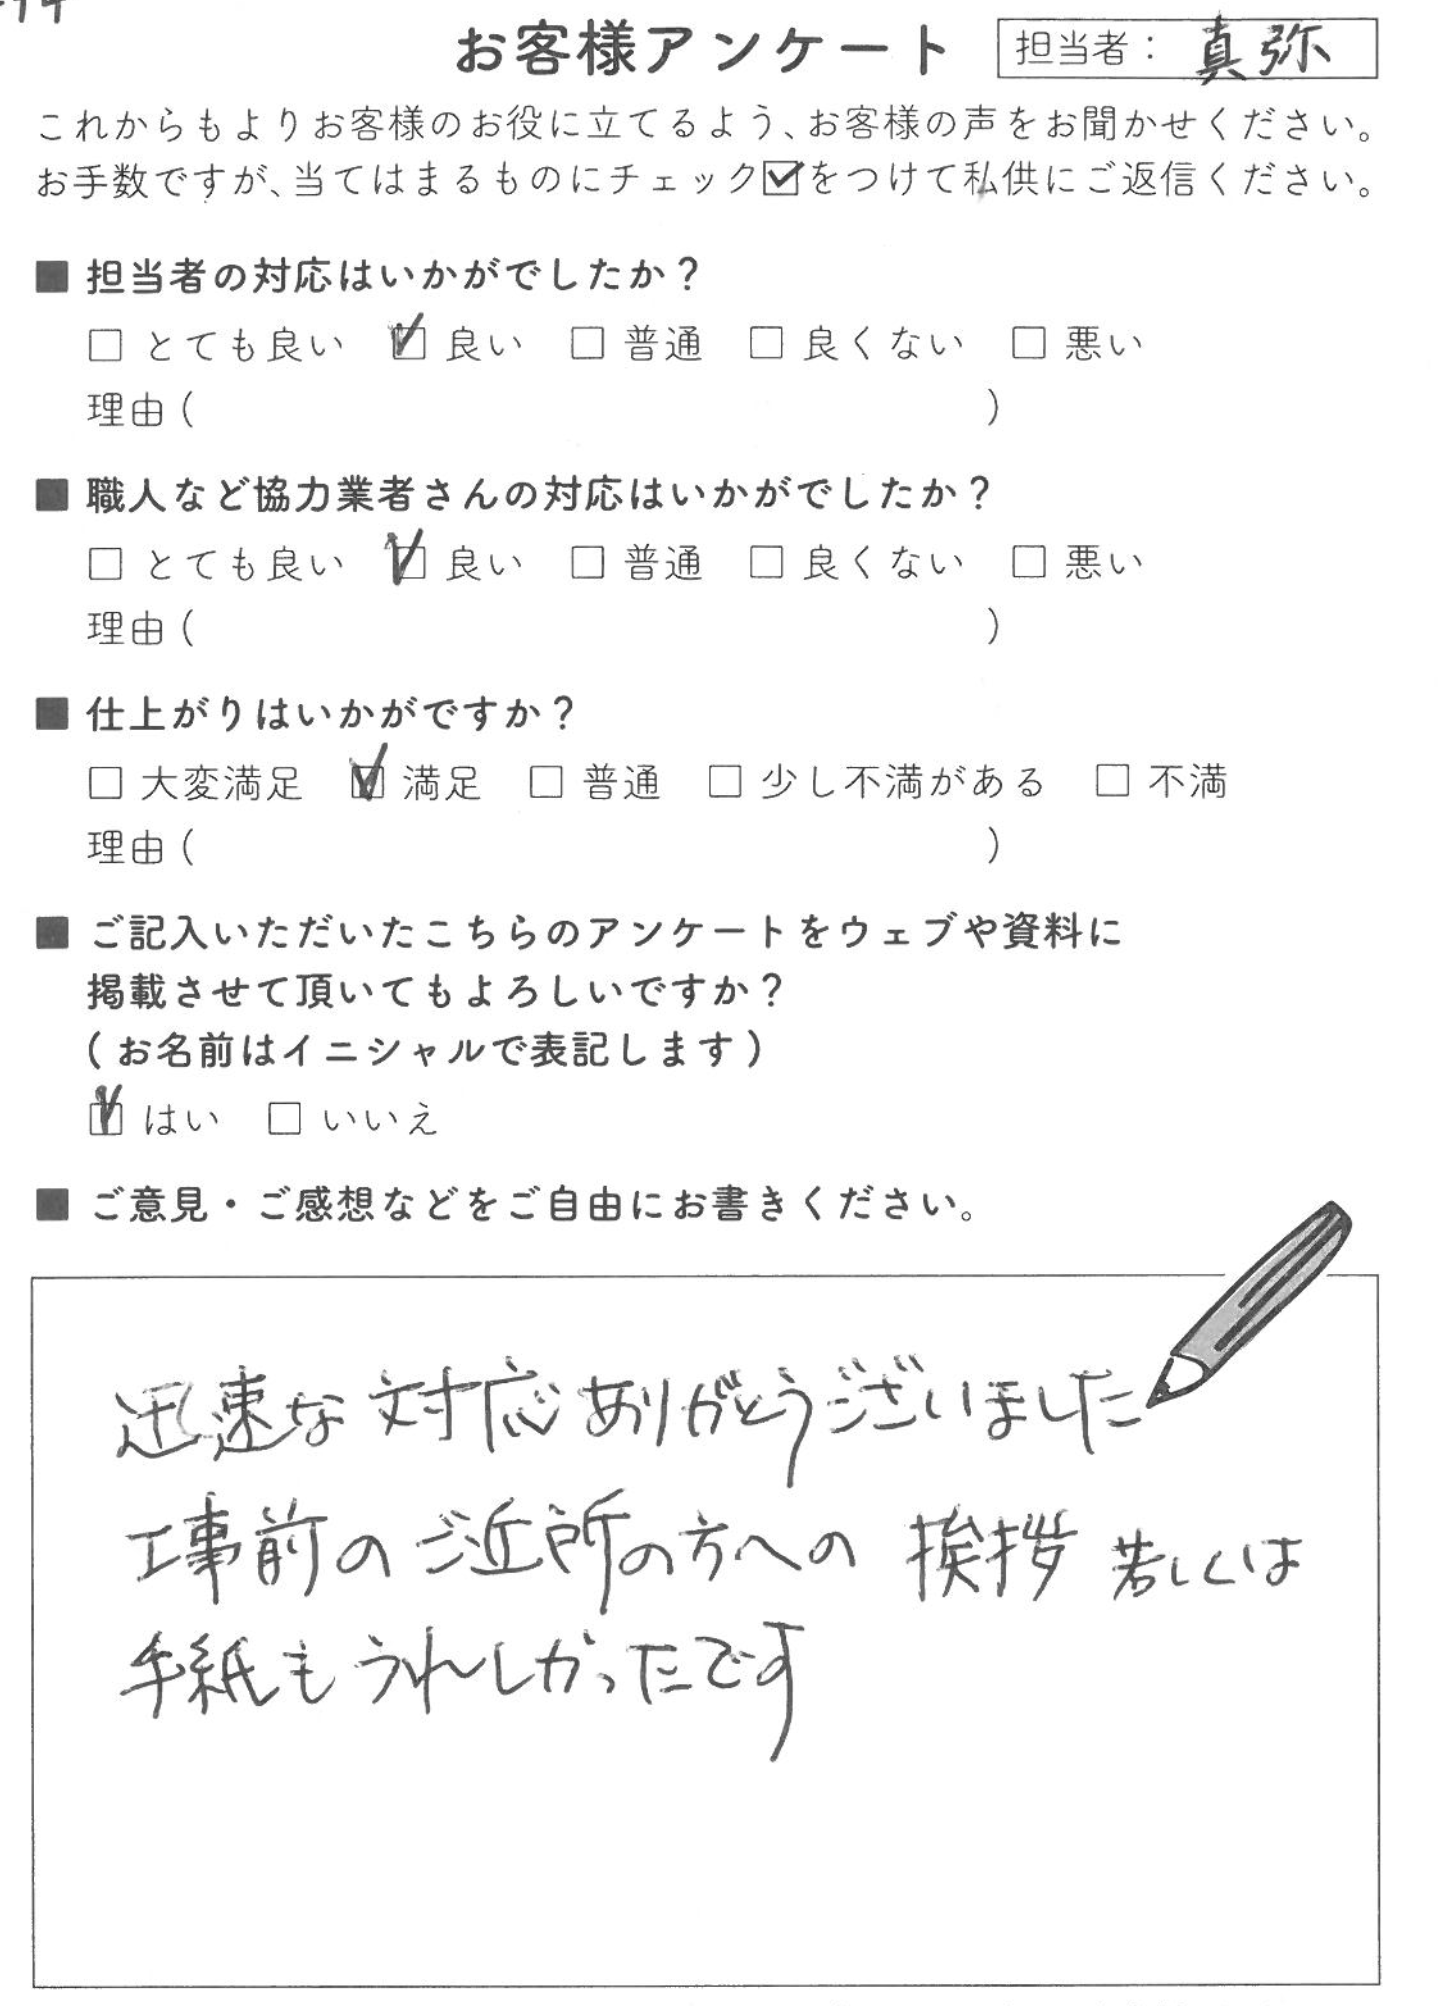 お客様アンケート 担当者： 真弥
これからもよりお客様のお役に立てるよう、お客様の声をお聞かせください。
お手数ですが、当てはまるものにチェック☑をつけて私供にご返信ください。
■ 担当者の対応はいかがでしたか？
□ とても良い ☑ 良い □ 普通 □ 良くない □ 悪い
理由（ ）
■ 職人など協力業者さんの対応はいかがでしたか？
□ とても良い ☑ 良い □ 普通 □ 良くない □ 悪い
理由（ ）
■ 仕上がりはいかがですか？
□ 大変満足 ☑ 満足 □ 普通 □ 少し不満がある □ 不満
理由（ ）
■ ご記入いただいたこちらのアンケートをウェブや資料に
掲載させて頂いてもよろしいですか？
（お名前はイニシャルで表記します）
☑ はい □ いいえ
■ ご意見・ご感想などをご自由にお書きください。
迅速な対応ありがとうございました
工事前のご近所の方への 挨拶 若しくは
手紙もうれしかったです